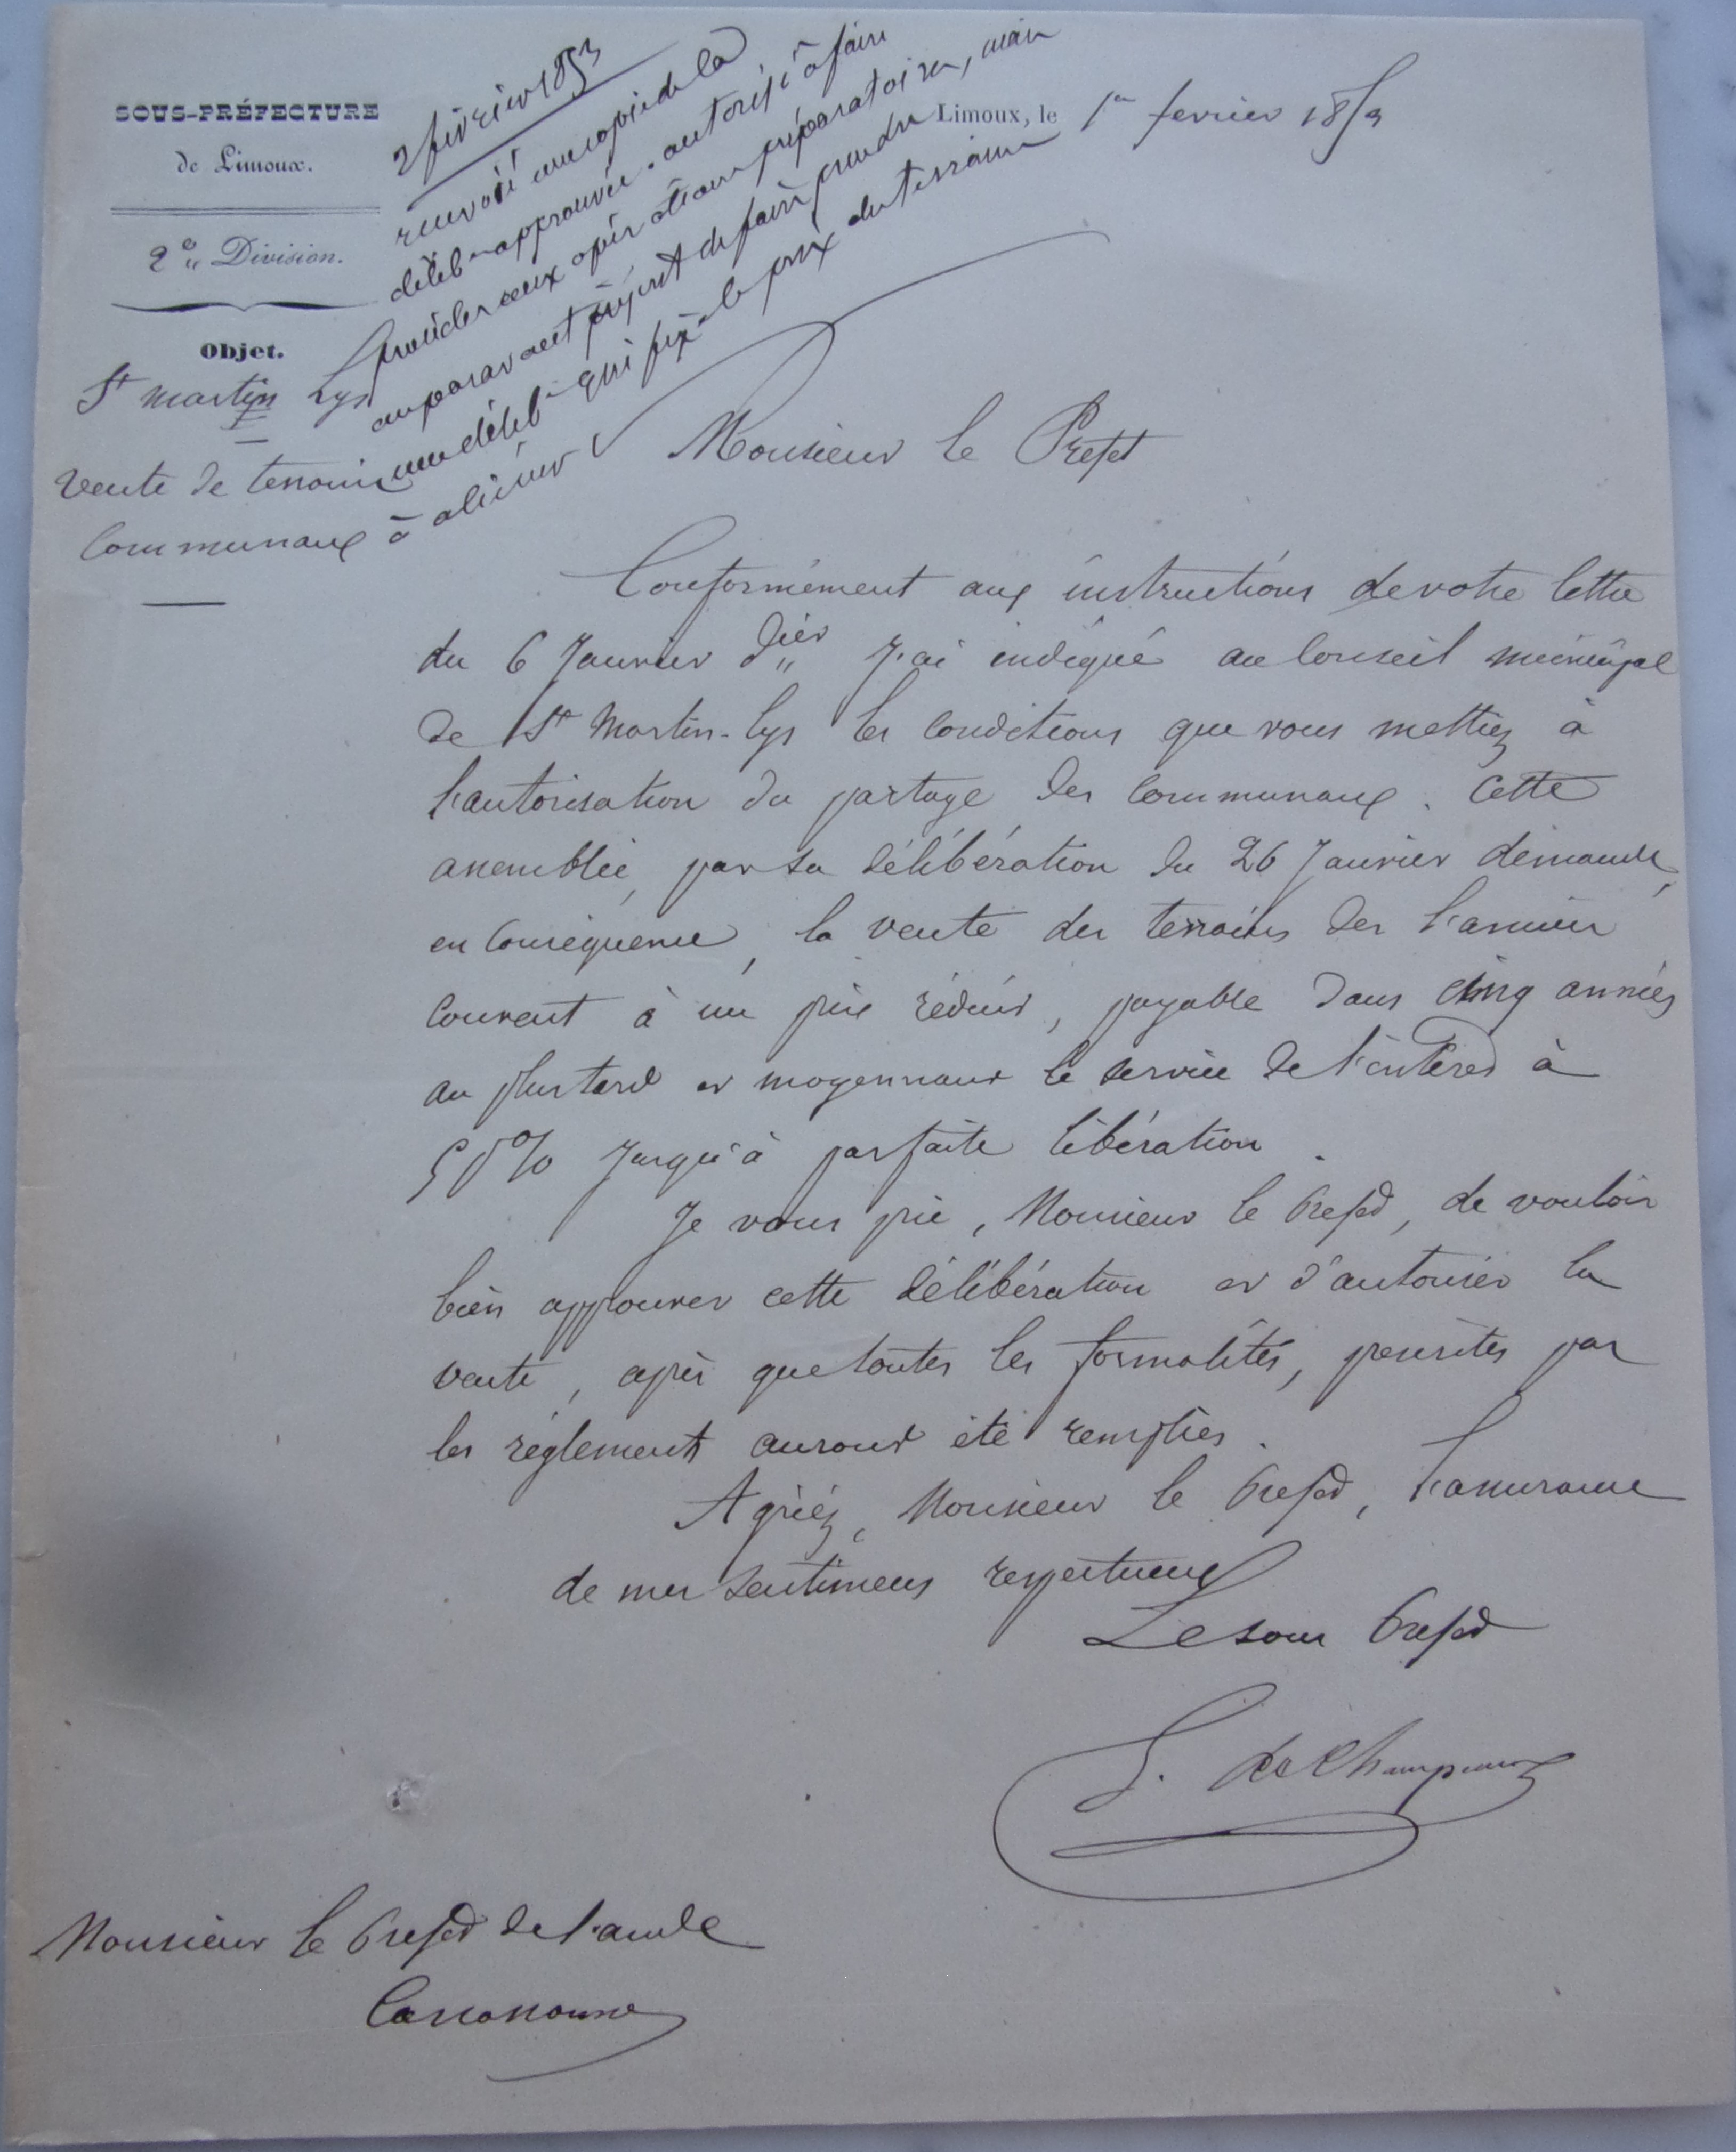 SOUS-PRÉFECTURE
de Limoux.
2e Division.
Objet.
St Martin Lys
Vente de terrains
Communaux
2 février 1853
renvoié une copie de la
délibon approuvée. autorisé à faire
procéder aux opérations préparatoires, mais
auparavant prient de faire prendre
une délibon qui fixe le prix des terrains
à aliéner
Limoux, le 1er fevrier 1853
Monsieur le Prefet
Conformément aux instructions de votre lettre
du 6 Janvier dier j'ai indiqué au Conseil municipal
de St Martin-Lys les conditions que vous mettiez à
l'autorisation du partage des communaux. Cette
assemblée, par sa délibération du 26 Janvier demande,
en conséquence, la vente des terrains des
courent à un prix réduit, payable dans cinq années
au plus tard et moyennant le service de l'intéret à
5 p% jusqu'à parfaite libération.
Je vous prie, Monsieur le Prefet, de vouloir
bien approuver cette délibération et d'autoriser la
vente, après que toutes les formalités, prescrites par
les réglements auront été remplies.
Agréez, Monsieur le Prefet, l'assurance
de mes sentimens respectueux
Le sous Prefet
de Champeaux
Monsieur le Prefet de l'aude
Carcassonne